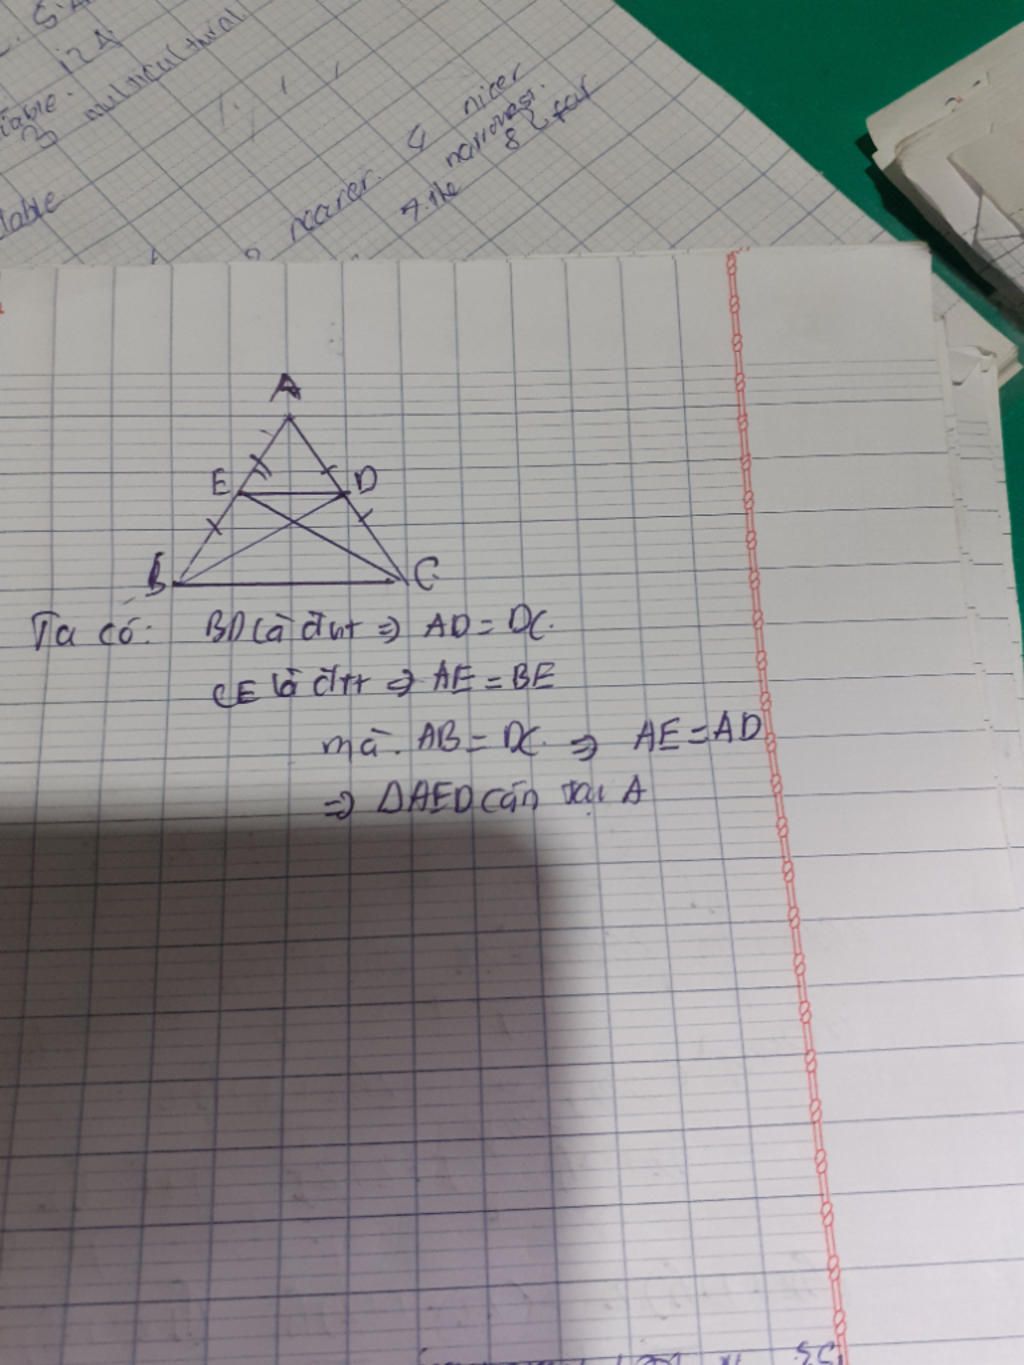 12A
multicultural
nearer. 4 nicer
7. the narrowest.
8 far
A
E D
B C
Ta có: BD là đtrt => AD = DC.
CE là đtrt => AE = BE
mà. AB = DC. => AE = AD
=> ΔAED cân tại A